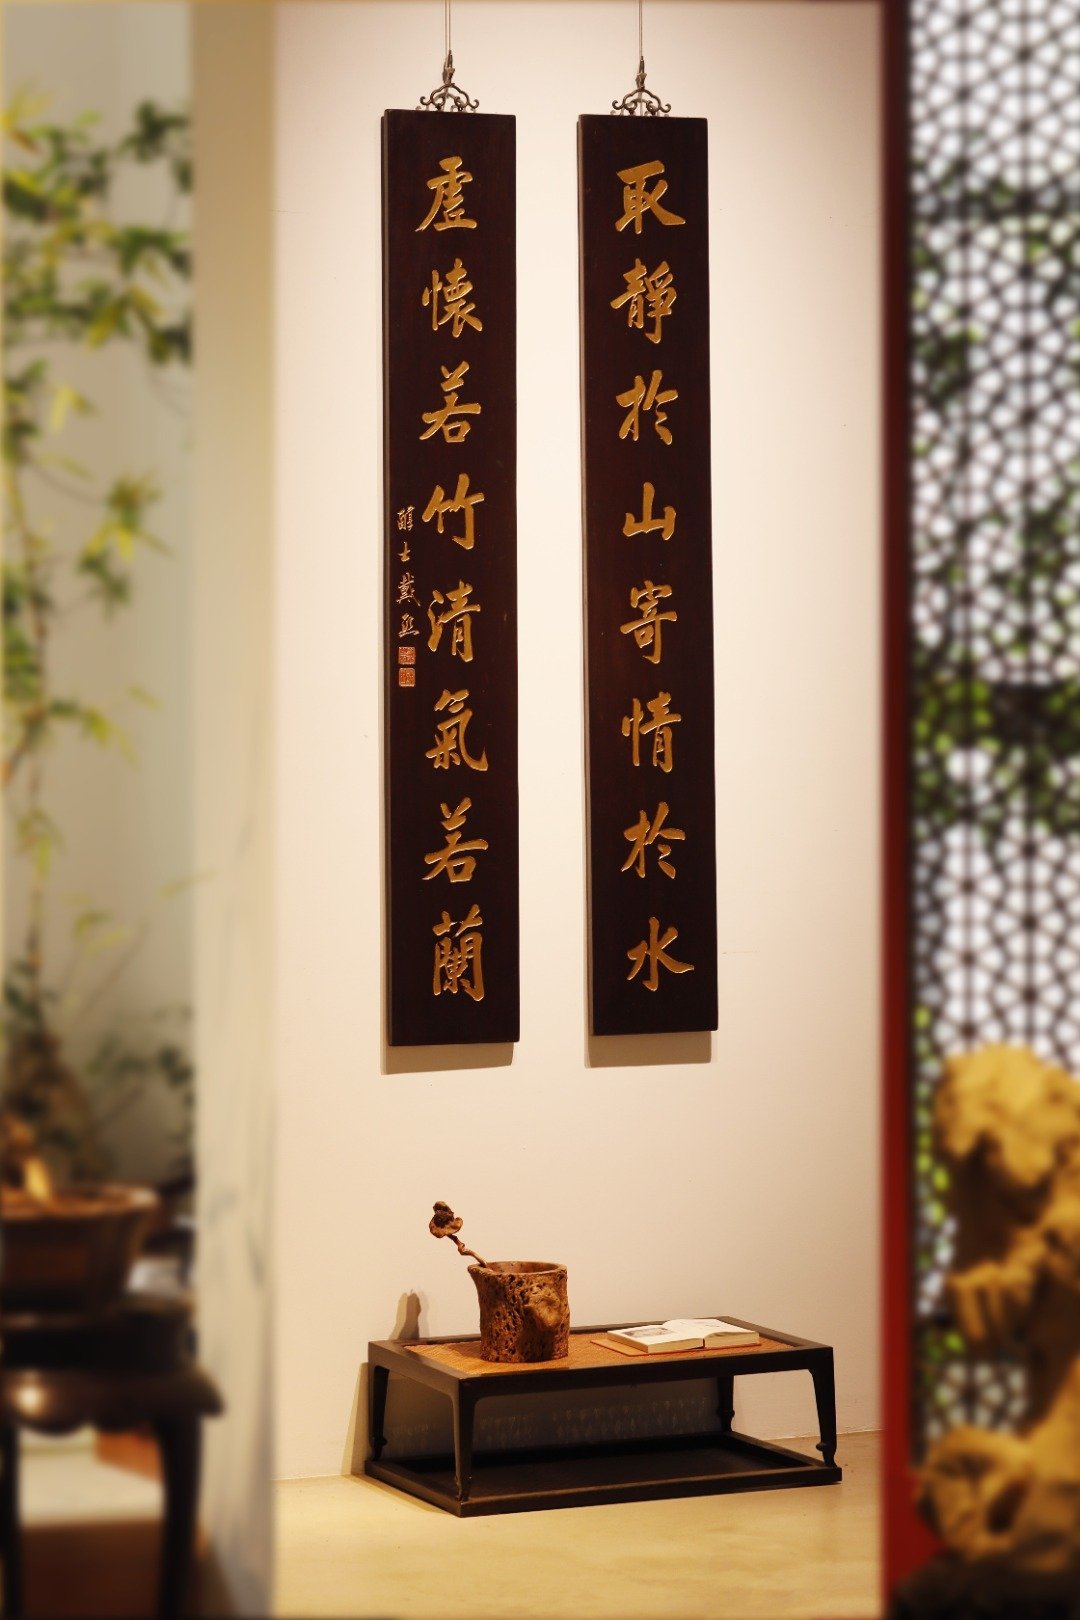 取靜於山寄情於水
虛懷若竹清氣若蘭
醇士戴熙